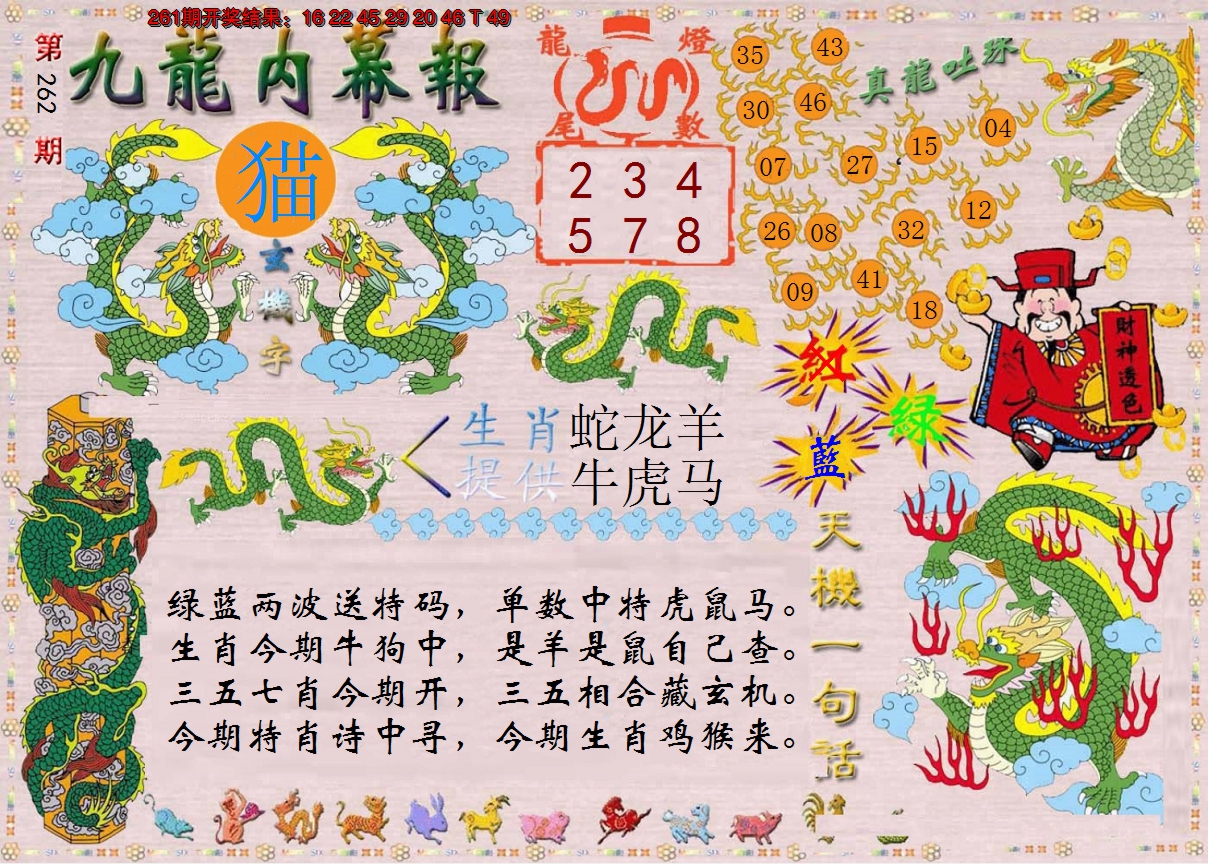 261期开奖结果：16 22 45 29 20 46 T 49
第262期
九龍内幕報
猫
玄機字
龍燈
尾數
2 3 4
5 7 8
真龍吐珠
35 43
30 46
15 04
07 27
12
26 08 32
09 41
18
財神透色
紅
绿
藍
生肖
提供
蛇龙羊
牛虎马
天機一句話
绿蓝两波送特码，单数中特虎鼠马。
生肖今期牛狗中，是羊是鼠自己查。
三五七肖今期开，三五相合藏玄机。
今期特肖诗中寻，今期生肖鸡猴来。